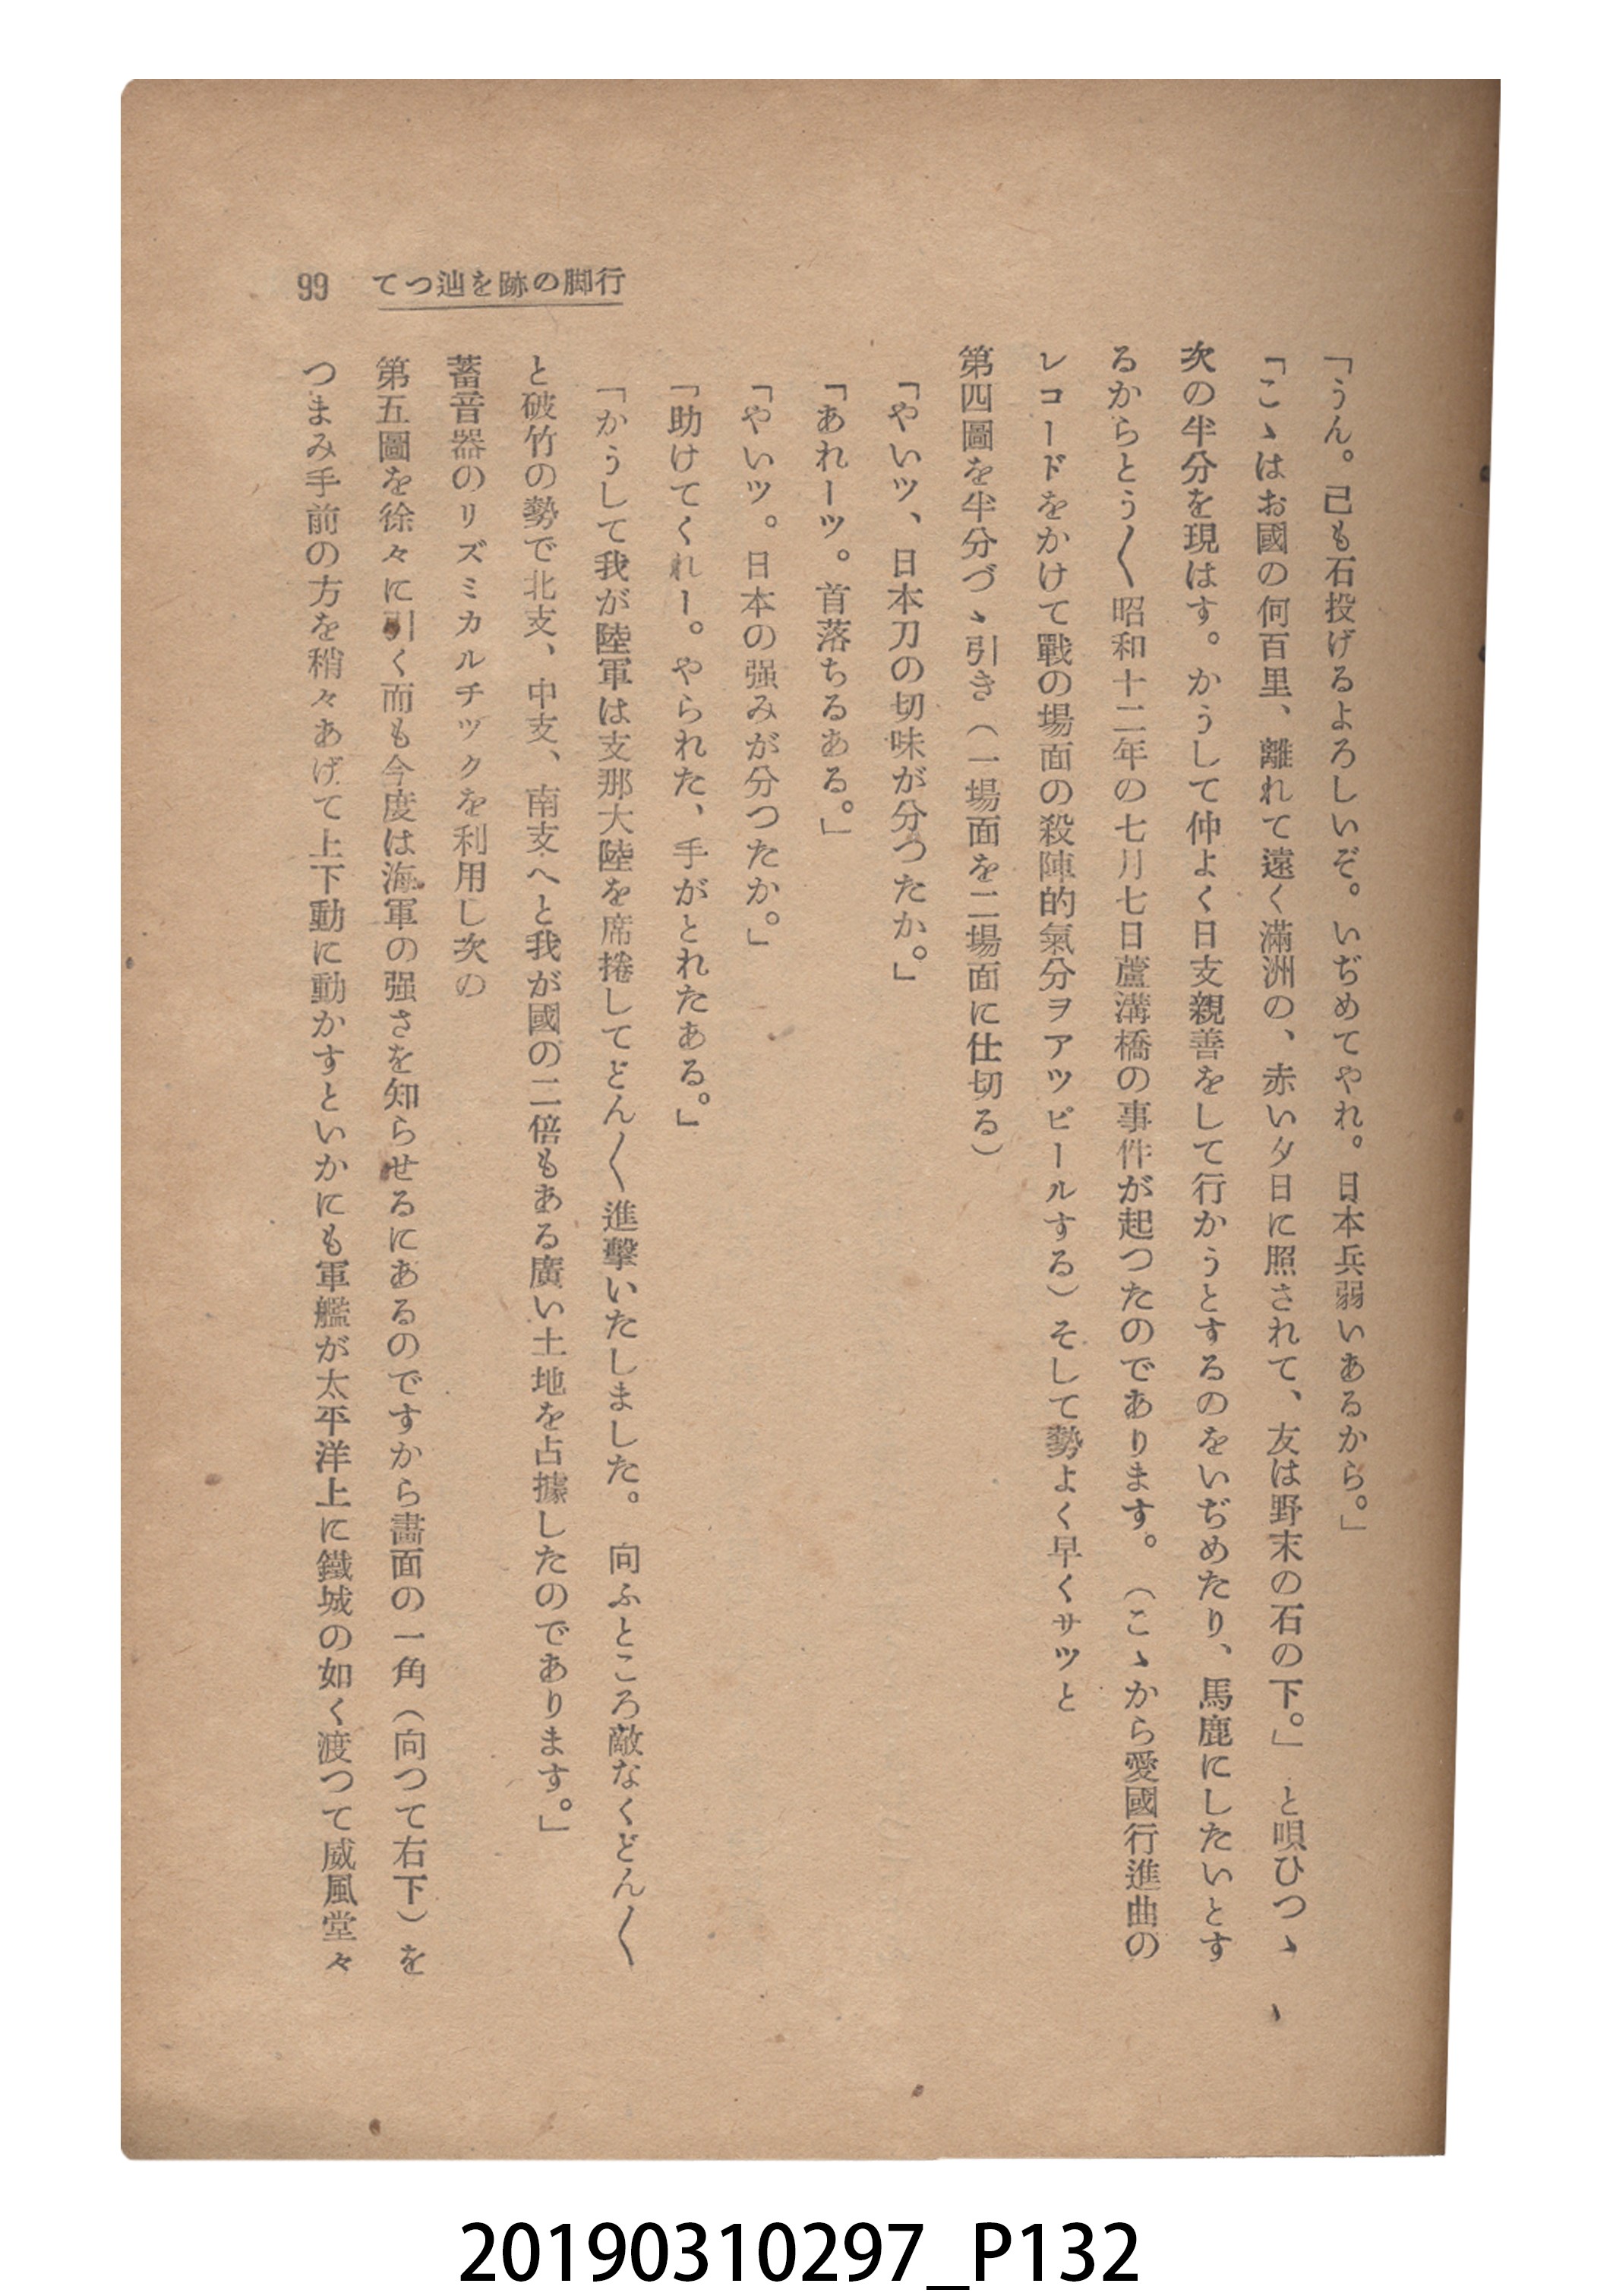 行脚の跡を辿つて 99
「うん。己も石投げるよろしいぞ。いぢめてやれ。日本兵弱いあるから。」
「こゝはお國の何百里、離れて遠く滿洲の、赤い夕日に照されて、友は野末の石の下。」と唄ひつゝ、
次の半分を現はす。かうして仲よく日支親善をして行かうとするのをいぢめたり、馬鹿にしたいとす
るからとう〱昭和十二年の七月七日蘆溝橋の事件が起つたのであります。（こゝから愛國行進曲の
レコードをかけて戰の場面の殺陣的氣分ヲアツピールする）そして勢よく早くサツと
第四圖を半分づゝ引き（一場面を二場面に仕切る）
「やいツ、日本刀の切味が分つたか。」
「あれーツ。首落ちるある。」
「やいツ。日本の强みが分つたか。」
「助けてくれー。やられた、手がとれたある。」
「かうして我が陸軍は支那大陸を席捲してどん〱進擊いたしました。向ふところ敵なくどん〱
と破竹の勢で北支、中支、南支へと我が國の二倍もある廣い土地を占據したのであります。」
蓄音器のリズミカルチックを利用し次の
第五圖を徐々に引く而も今度は海軍の强さを知らせるにあるのですから畵面の一角（向つて右下）を
つまみ手前の方を稍々あげて上下動に動かすといかにも軍艦が太平洋上に鐵城の如く渡つて威風堂々
20190310297_P132